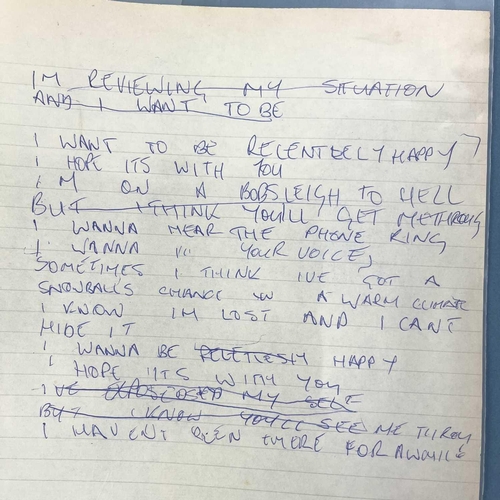 IM REVIEWING MY SITUATION
AND I WANT TO BE
I WANT TO BE RELENTLELY HAPPY
I HOPE ITS WITH YOU
I'M ON A BOBSLEIGH TO HELL
BUT I THINK YOU'LL GET ME THROUG
I WANNA HEAR THE PHONE RING
I WANNA YOUR VOICE,
SOMETIMES I THINK IVE GOT A
SNOWBALLS CHANCE IN A WARM CLIMATE
I KNOW IM LOST AND I CANT
HIDE IT
I WANNA BE HAPPY
I HOPE ITS WITH YOU
I'VE MY SELF
BUT I KNOW YOU'LL SEE ME THROU
I HAVENT BEEN THERE FOR AWHILE